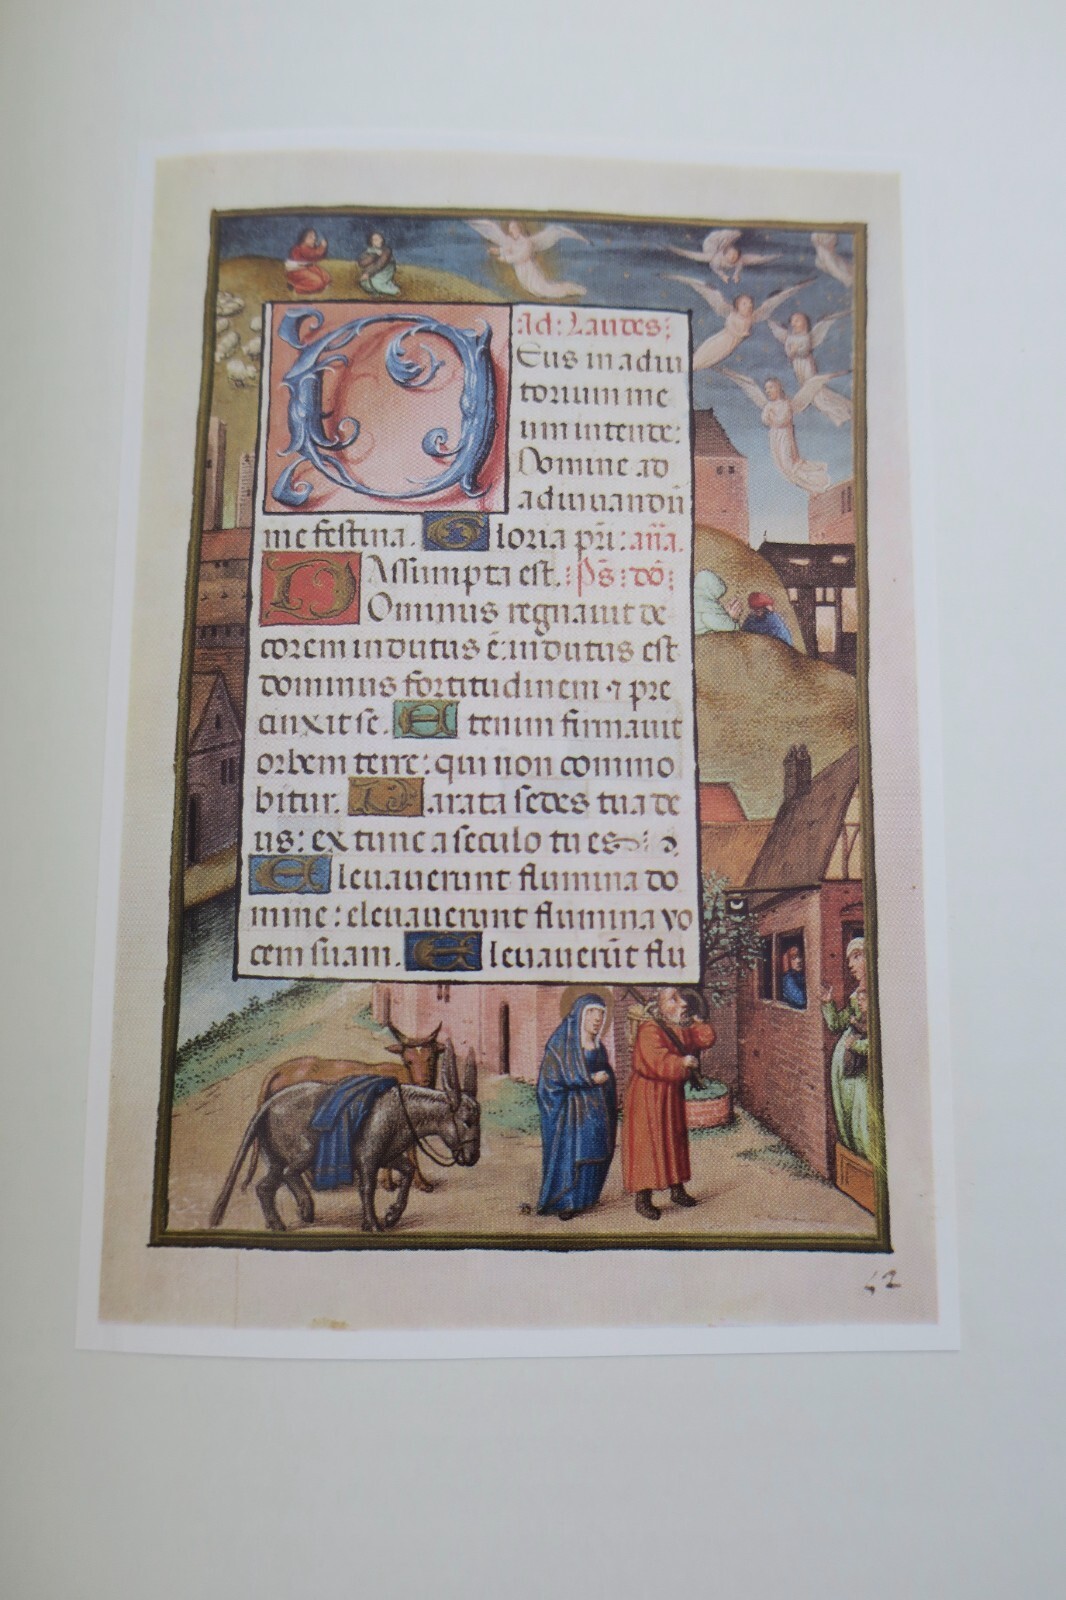 ad: Laudes:
Eus in adiu
torium me
um intende:
Domine ad
adiuuandū
me festina. Gloria pr̄i: an̄a.
Assumpta est. Ps̄: dō:
DOminus regnauit de
corem indutus ē: indutus est
dominus fortitudinem ⁊ pre
cinxit se. Etenim firmauit
orbem terre: qui non commo
bitur. Parata sedes tua de
us: ex tunc a seculo tu es:
Eleuauerunt flumina do
mine: eleuauerunt flumina vo
cem suam. Eleuauerūt flu
42